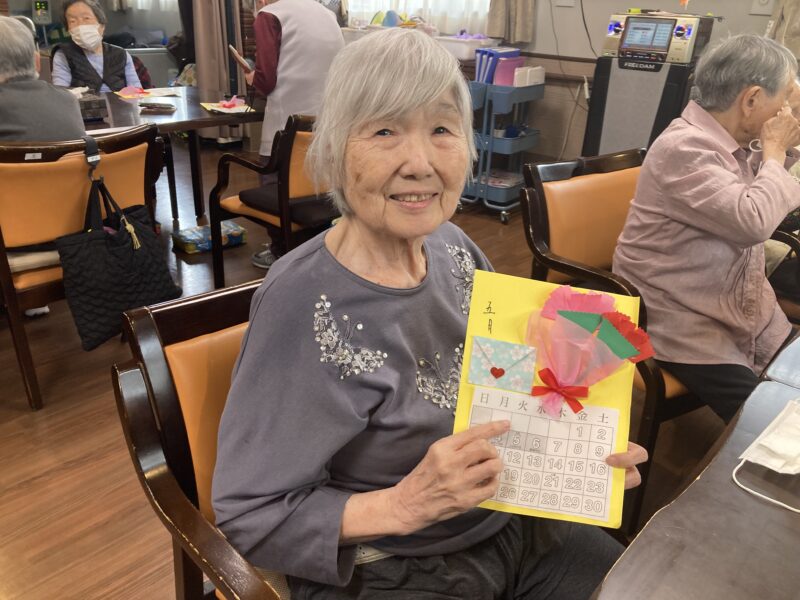 FREEDAM
五月
日 月 火 水 木 金 土
1 2
5 6 7 8 9
12 13 14 15 16
19 20 21 22 23
26 27 28 29 30